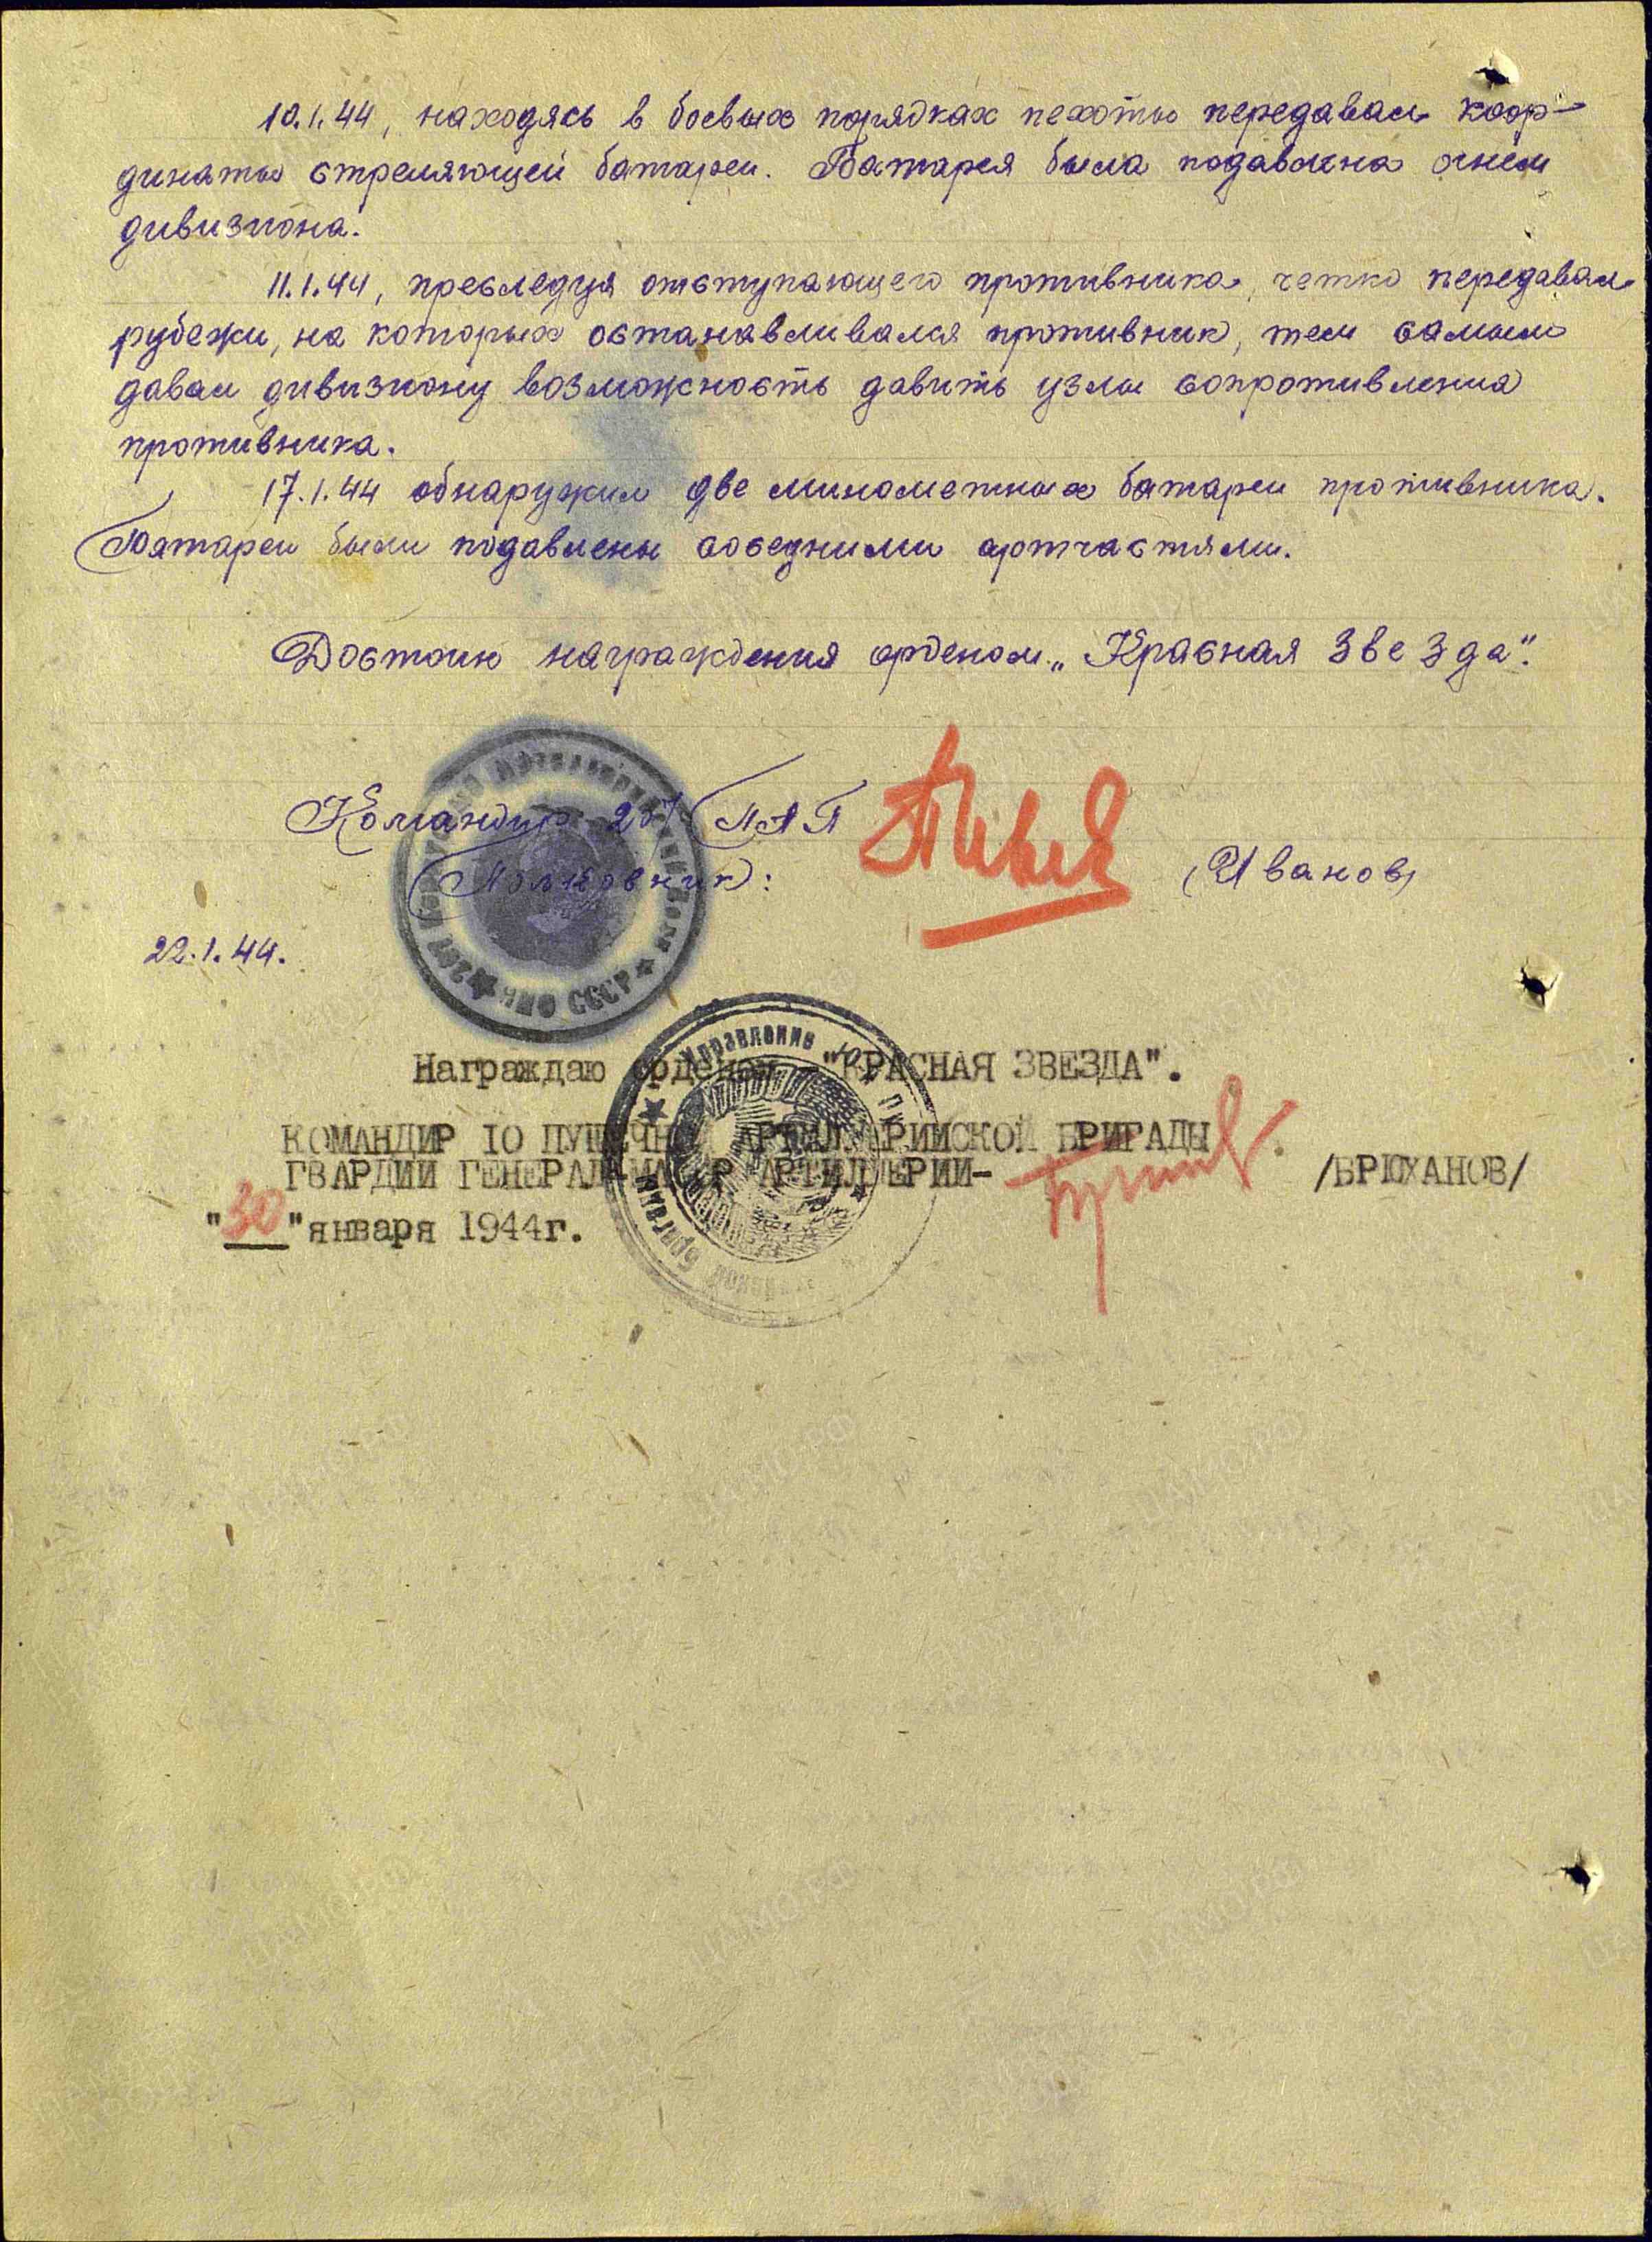 10.1.44, находясь в боевых порядках пехоты передавал коор-
динаты стреляющей батареи. Батарея была подавлена огнем
дивизиона.
11.1.44, преследуя отступающего противника, четко передавал
рубежи, на которых останавливался противник, тем самым
давал дивизиону возможность давить узлы сопротивления
противника.
17.1.44 обнаружил две минометных батареи противника.
Батареи были подавлены соседними артчастями.
Достоин награждения орденом „Красная Звезда".
Командир 207 ПАП
Полковник:
(Иванов)
22.1.44.
НКО СССР
Управление
Награждаю орденом "КРАСНАЯ ЗВЕЗДА".
КОМАНДИР 10 ПУШЕЧНОЙ АРТИЛЛЕРИЙСКОЙ БРИГАДЫ
ГВАРДИИ ГЕНЕРАЛ-МАЙОР АРТИЛЛЕРИИ-
/БРЮХАНОВ/
"30" января 1944г.